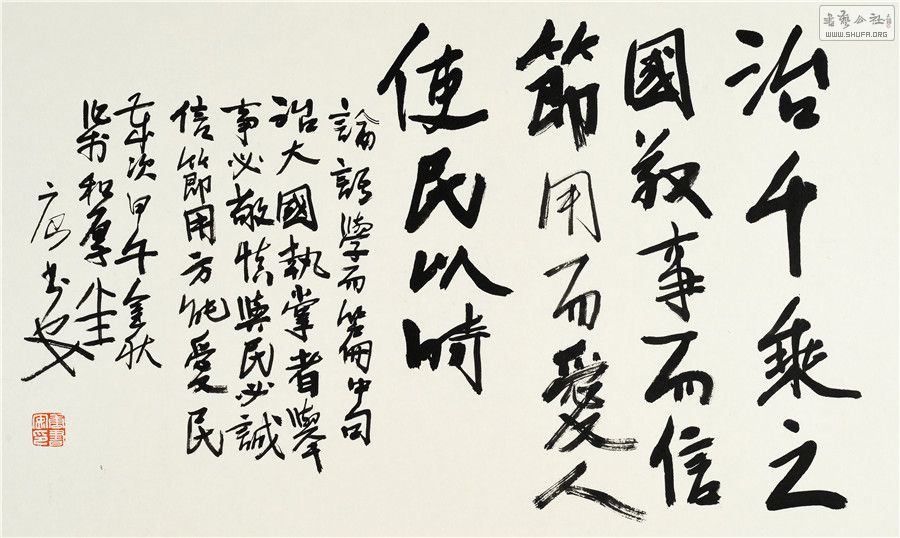 治千乘之
國敬事而信
節用而愛人
使民以時
論語學而中句
治大國執掌者舉
事必敬慎與民必誠
信節用方能愛民
歲次甲午金秋
和厚堂
書藝公社
WWW.SHUFA.ORG